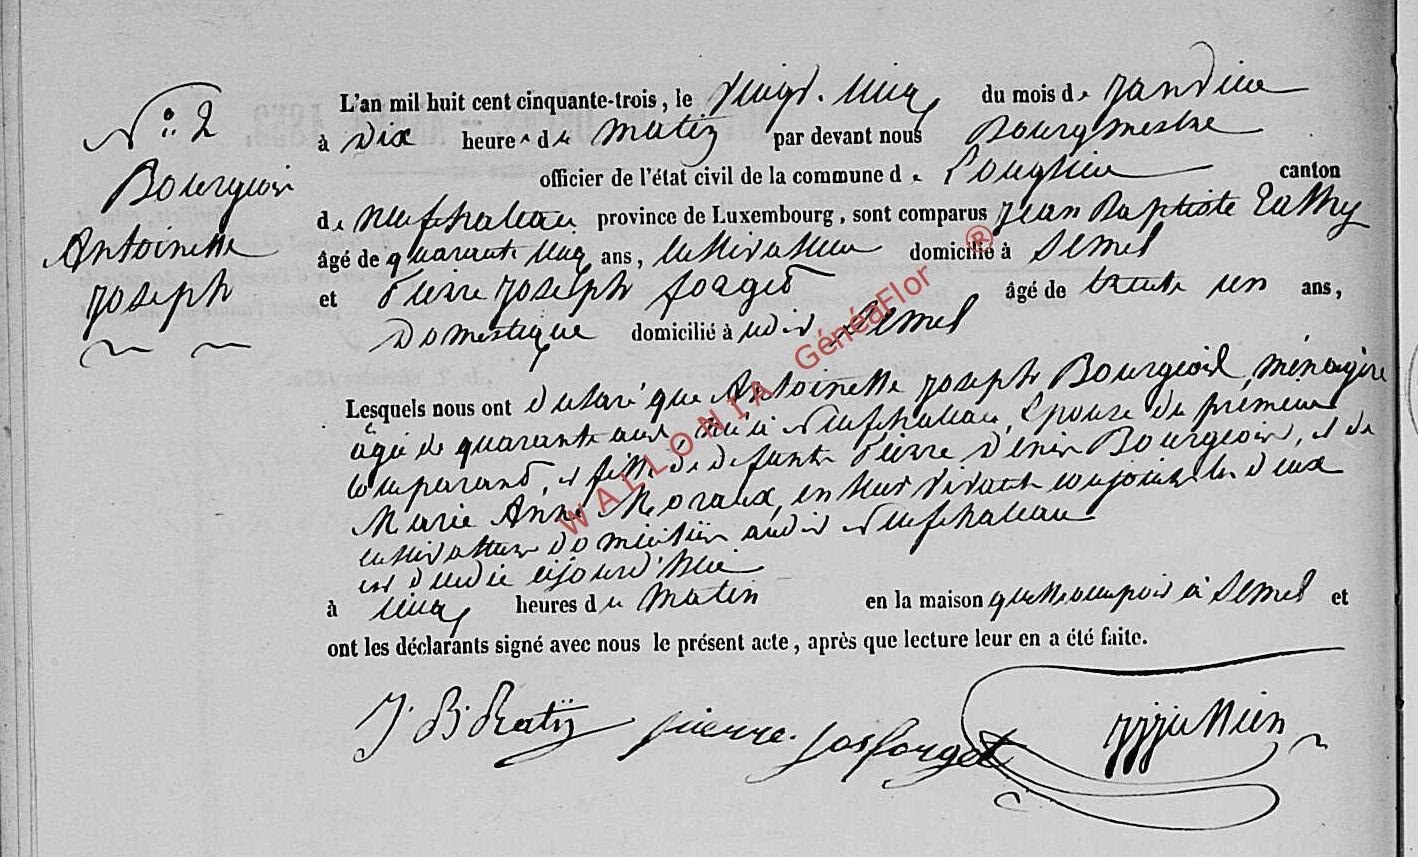 N° 2
Bourgeois
Antoinette
Joseph
L'an mil huit cent cinquante-trois, le vingt-cinq du mois de janvier
à dix heures du matin par devant nous Bourgmestre
officier de l'état civil de la commune de Longlier canton
de Neufchateau province de Luxembourg, sont comparus Jean Baptiste
âgé de quarante cinq ans, cultivateur domicilié à Semel
et Pierre Joseph forget âgé de trente un ans,
Domestique domicilié à udit Semel
Lesquels nous ont déclaré que Antoinette Joseph Bourgeois, ménagère
agée de quarante ans, née à Neufchateau, Epouse du premier
comparant, et fille de défunts Pierre Denis Bourgeois, et de
Marie Anne Moraux, en leur vivant conjoints les deux
cultivateurs domiciliés audit Neufchateau
est décédée aujourd'hui
à cinq heures du matin en la maison qu'elle occupoit à Semel et
ont les déclarants signé avec nous le présent acte, après que lecture leur en a été faite.
J. B. pierre. Jos forget
WALLONIA GénéaFlor ®